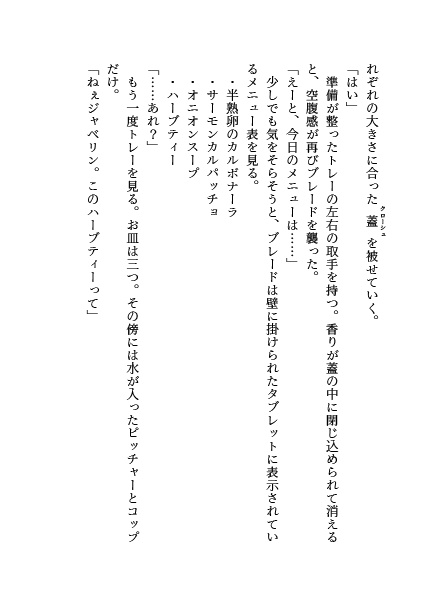 れぞれの大きさに合った蓋を被せていく。
クローシュ
「はい」
準備が整ったトレーの左右の取手を持つ。香りが蓋の中に閉じ込められて消える
と、空腹感が再びブレードを襲った。
「えーと、今日のメニューは……」
少しでも気をそらそうと、ブレードは壁に掛けられたタブレットに表示されてい
るメニュー表を見る。
・半熟卵のカルボナーラ
・サーモンカルパッチョ
・オニオンスープ
・ハーブティー
「……あれ？」
もう一度トレーを見る。お皿は三つ。その傍には水が入ったピッチャーとコップ
だけ。
「ねぇジャベリン。このハーブティーって」